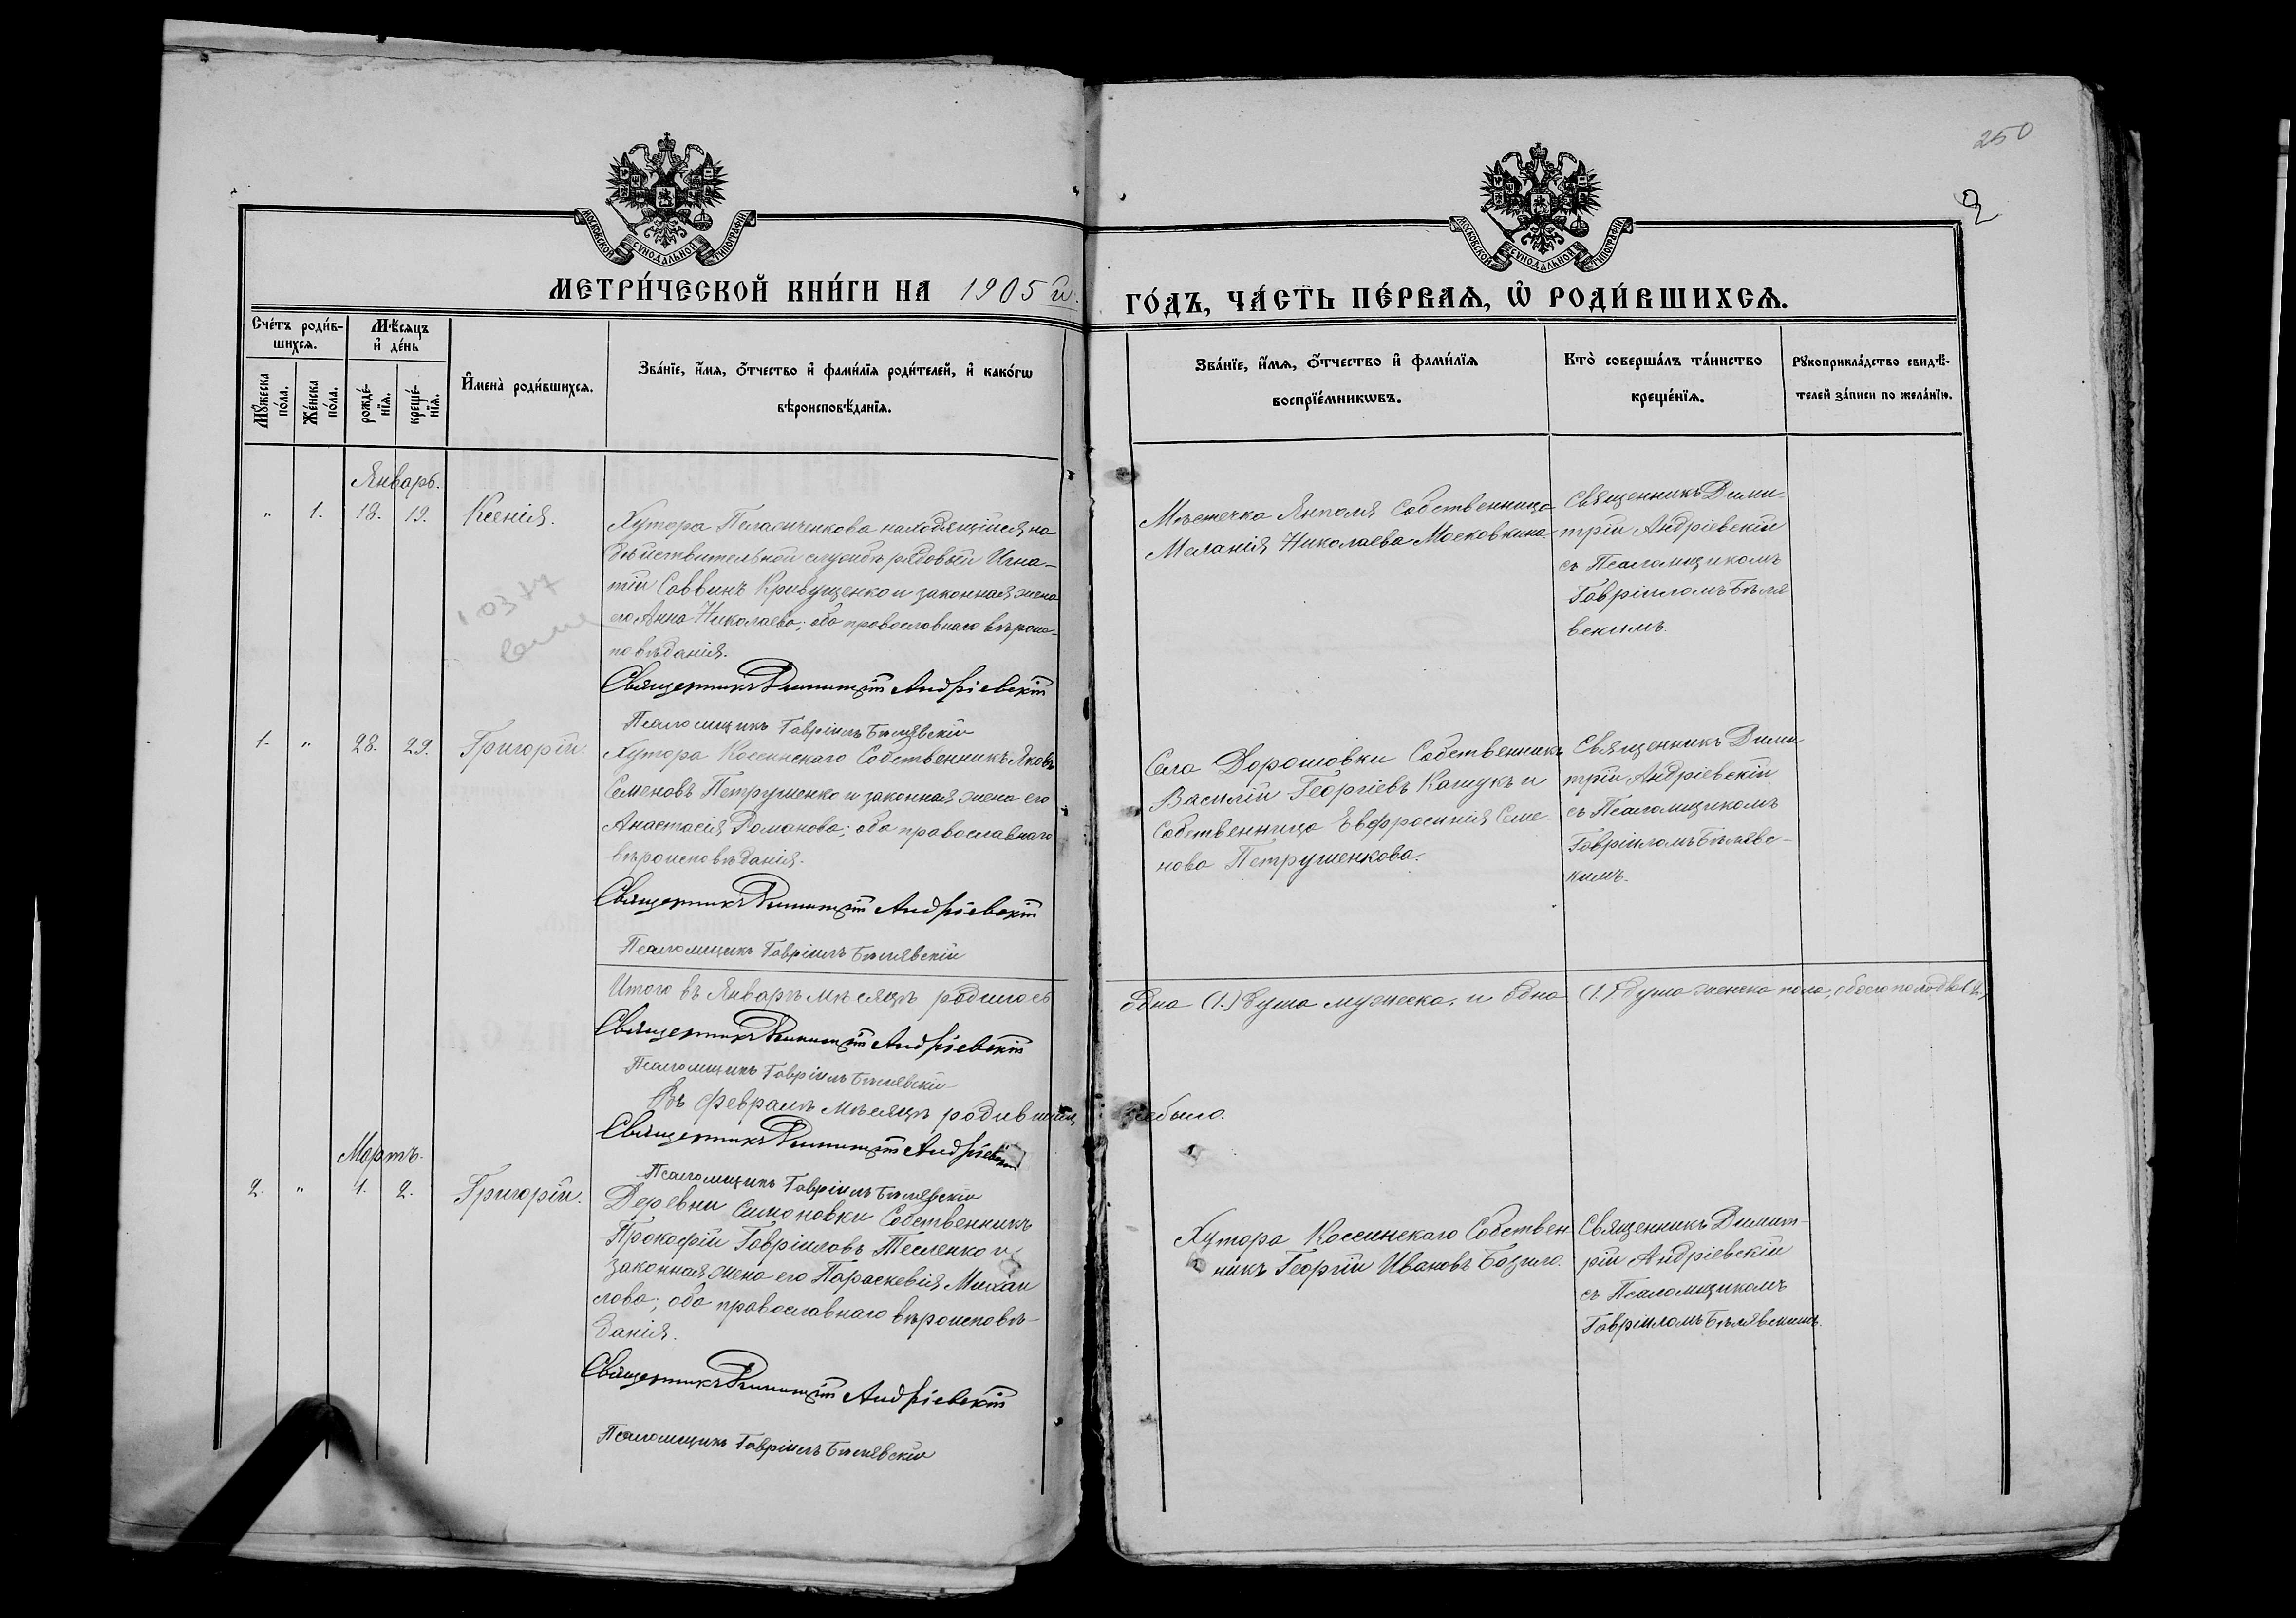 250
2
МОСКОВСКОЙ СУНОДАЛЬНОЙ ТИПОГРАФІИ
МОСКОВСКОЙ СУНОДАЛЬНОЙ ТИПОГРАФІИ
МЕТРИ́ЧЕСКОЙ КНИ́ГИ НА 1905 й.
ГО́ДЪ, ЧА́СТЬ ПЕ́РВАѦ, Ѡ҆ РОДИ́ВШИХСѦ.
Сче́тъ роди́в-
шихсѧ.
Мѣ́сѧцъ
и҆ де́нь
Мꙋ́жеска
по́ла.
Же́нска
по́ла.
рожде́-
нїѧ.
креще́-
нїѧ.
И҆мена̀ роди́вшихсѧ.
Зва́нїе, и҆́мѧ, ѻ҆́тчество и҆ фами́лїѧ роди́телей, и҆ како́гѡ
вѣроисповѣ́данїѧ.
Зва́нїе, и҆́мѧ, ѻ҆́тчество и҆ фами́лїѧ
воспрїе́мникѡвъ.
Кто̀ соверша́лъ та́инство
креще́нїѧ.
Рꙋкоприкла́дство свидѣ́-
телей за́писи по жела́нїю.
Январь.
" 1. 18. 19. Ксенія.
Хутора находящійся на
дѣйствительной службѣ рядовый Игна-
тій Саввинъ Кривущенко и законная жена
его Анна Николаева; оба православнаго вѣроис-
повѣданія.
Священникъ Димитрій Андріевскій
Псаломщикъ Гавріилъ Бѣлявскій
Мѣстечка Янполя Собственница
Меланія Николаева Московкина
Священникъ Дими-
трій Андріевскій
съ Псаломщикомъ
Гавріиломъ Бѣля
вскимъ.
10377
1. " 28. 29. Григорій.
Хутора Коссинскаго Собственникъ Яковъ
Семеновъ Петрушенко и законная жена его
Анастасія Романова; оба православнаго
вѣроисповѣданія.
Священникъ Димитрій Андріевскій
Псаломщикъ Гавріилъ Бѣлявскій
Села Дорошовки Собственникъ
Василій Георгіевъ Кашукъ и
Собственница Евфросинія Семе-
нова Петрушенкова.
Священникъ Дими
трій Андріевскій
съ Псаломщикомъ
Гавріиломъ Бѣлявс-
кимъ.
Итого въ Январѣ мѣсяцѣ родилось
одна (1.) душа мужеска, и одна (1.) душа женска пола, обоего пола двѣ (2.)
Священникъ Димитрій Андріевскій
Псаломщикъ Гавріилъ Бѣлявскій
Въ Февралѣ мѣсяцѣ родившихся
небыло.
Священникъ Димитрій Андріевскій
Псаломщикъ Гавріилъ Бѣлявскій
Мартъ.
2. " 1. 2. Григорій.
Деревни Симоновки Собственникъ
Прокофій Гавріиловъ Тесленко и
законная жена его Параскевія Михаи
лова; оба православнаго вѣроисповѣ-
данія.
Священникъ Димитрій Андріевскій
Псаломщикъ Гавріилъ Бѣлявскій
Хутора Коссинскаго Собствен
никъ Георгій Ивановъ Базило.
Священникъ Димит-
рій Андріевскій
съ Псаломщикомъ
Гавріиломъ Бѣлявскимъ.